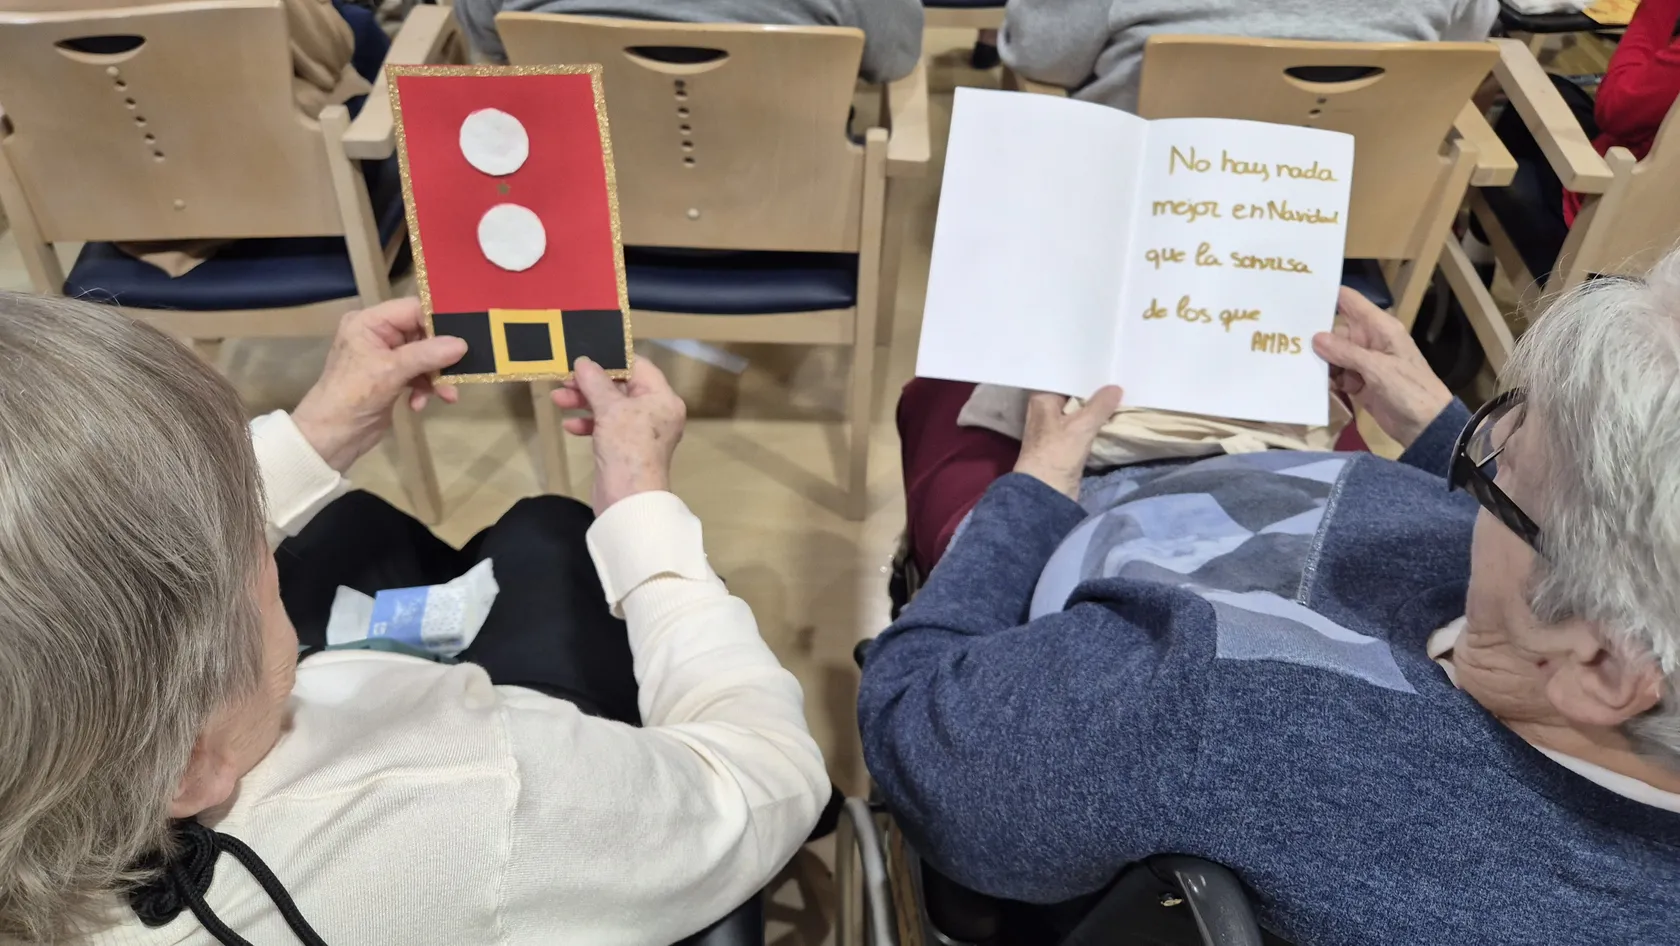 No hay nada
mejor en Navidad
que la sonrisa
de los que
AMAS